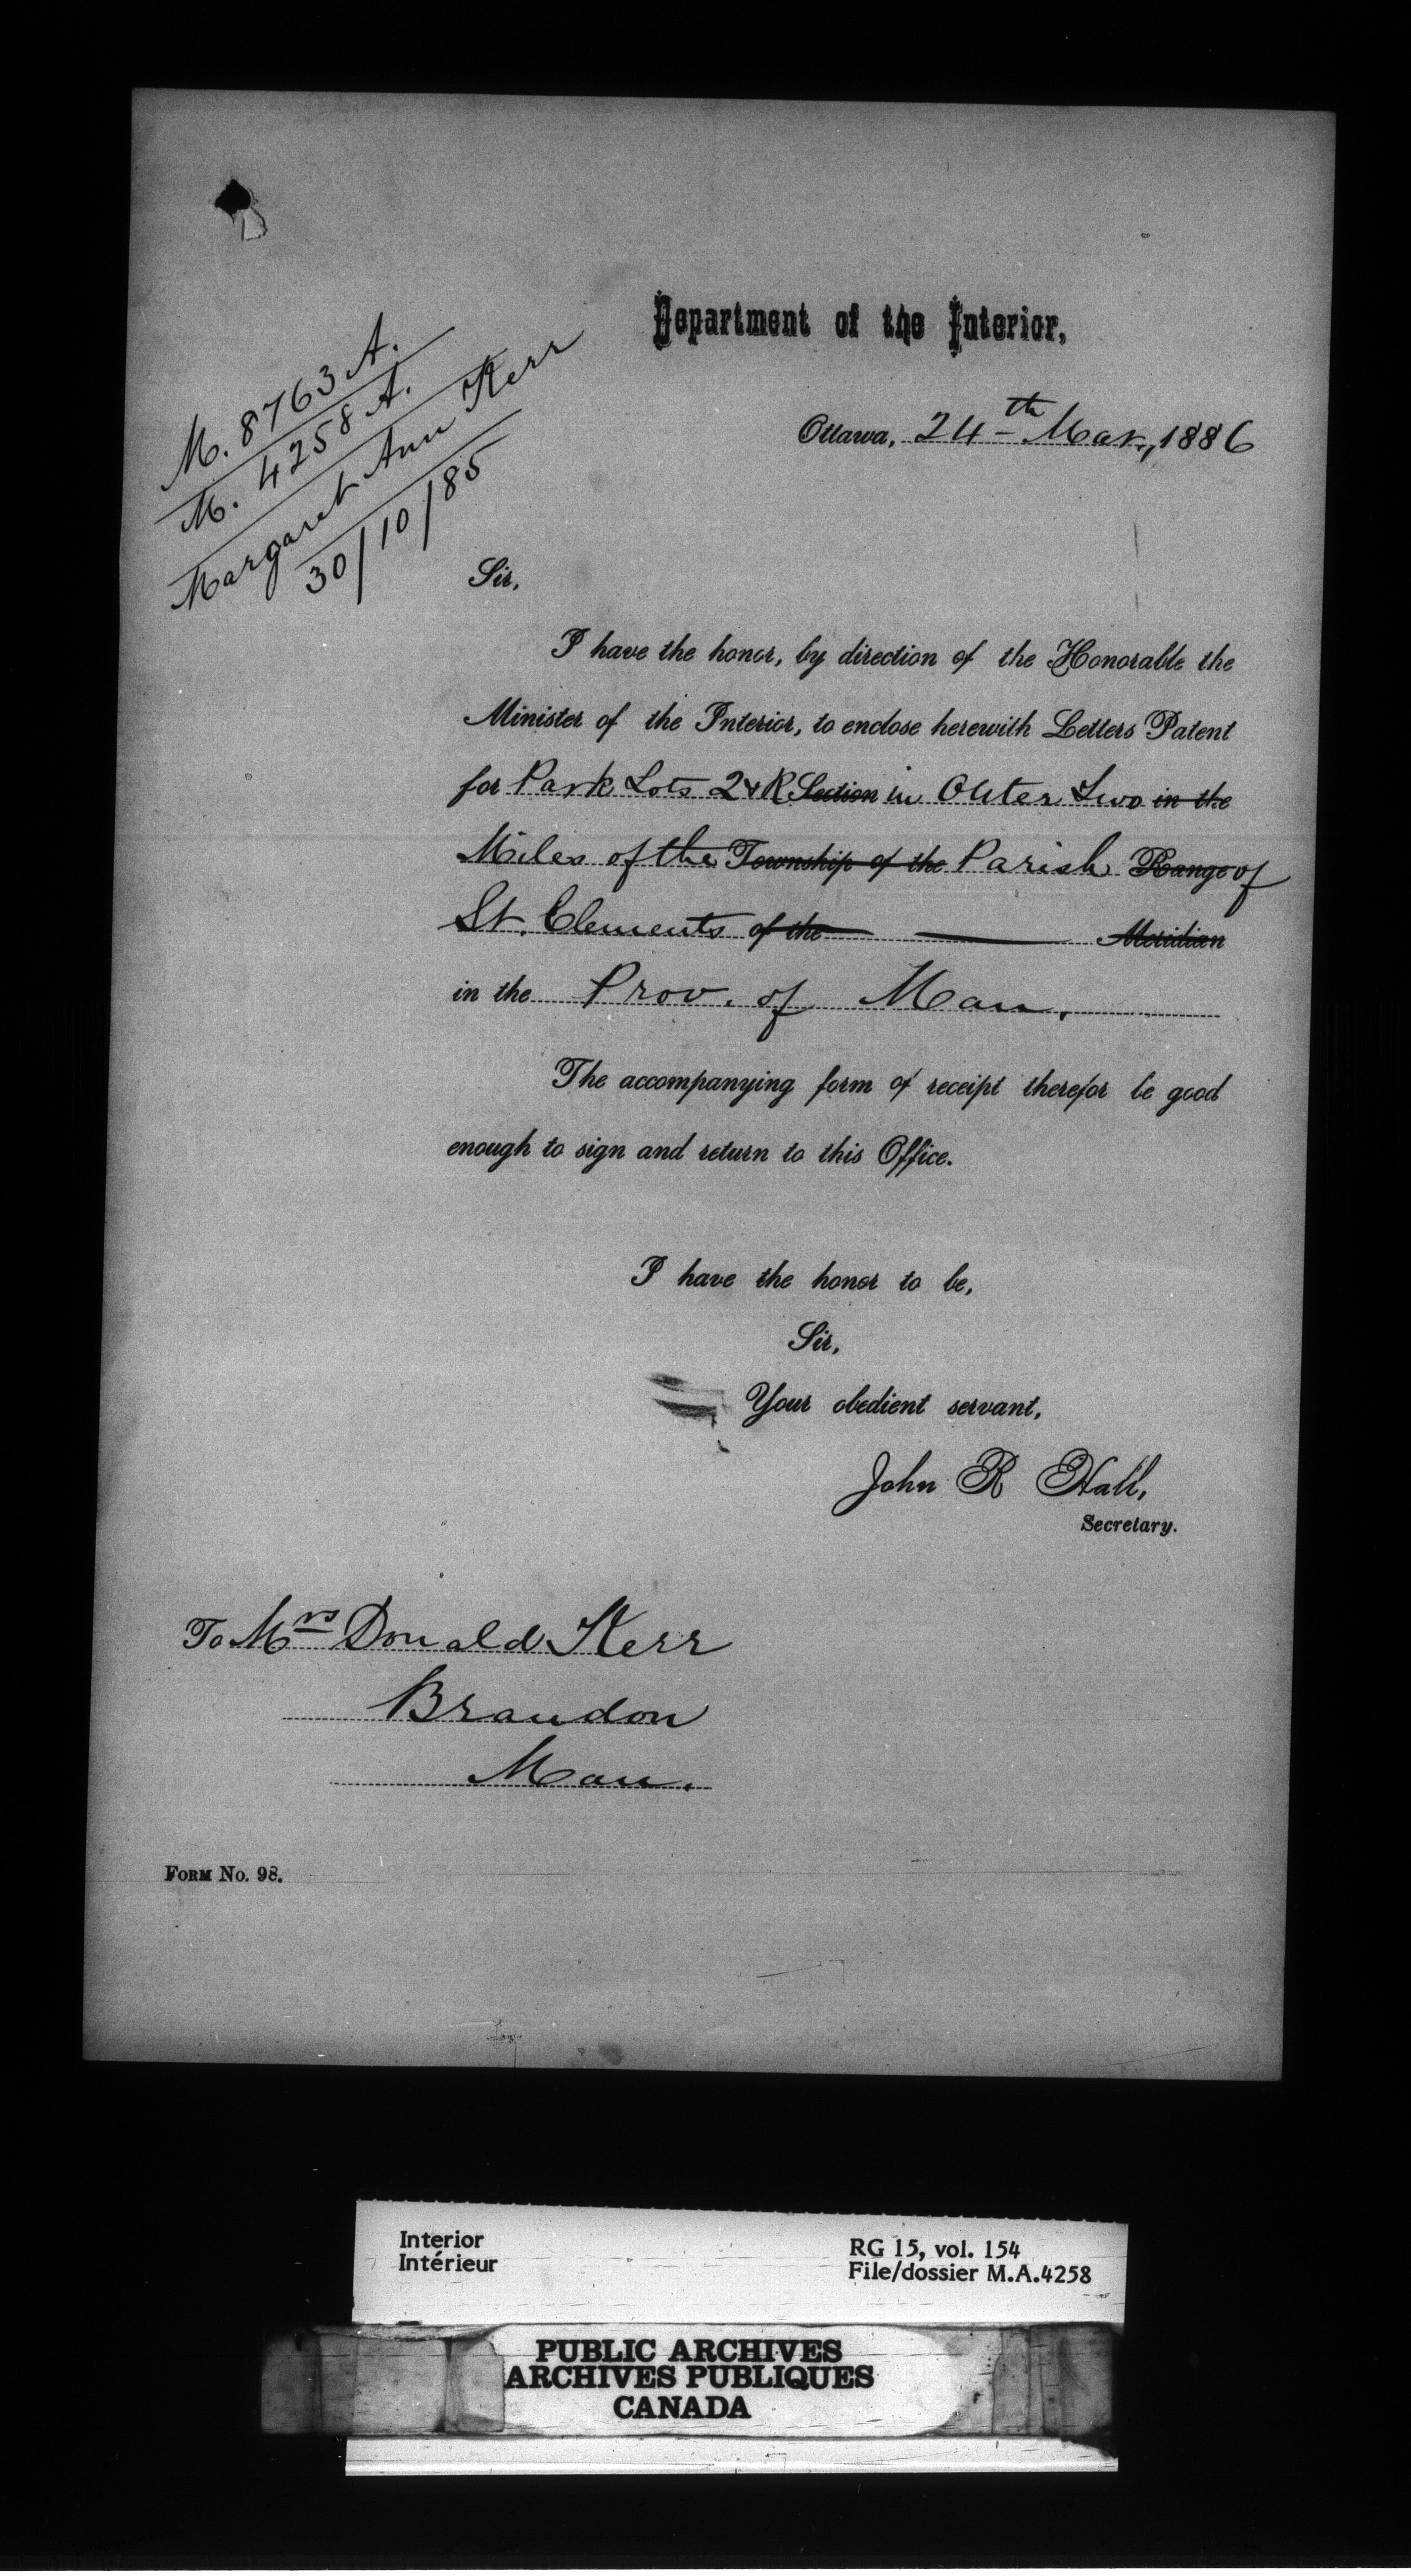 M. 8763 A.
M. 4258 A.
Margaret Ann Kerr
30/10/85
Department of the Interior,
Ottawa, 24th Mar., 1886
Sir,
I have the honor, by direction of the Honorable the
Minister of the Interior, to enclose herewith Letters Patent
for Park Lots 2 & R Section in Outer Two in the
Miles of the Township of the Parish Range of
St. Clements of the Meridian
in the Prov. of Man.
The accompanying form of receipt therefor be good
enough to sign and return to this Office.
I have the honor to be,
Sir,
Your obedient servant,
John R Hall,
Secretary.
To Mrs Donald Kerr
Brandon
Man.
FORM No. 98.
Interior
Intérieur
RG 15, vol. 154
File/dossier M.A.4258
PUBLIC ARCHIVES
ARCHIVES PUBLIQUES
CANADA